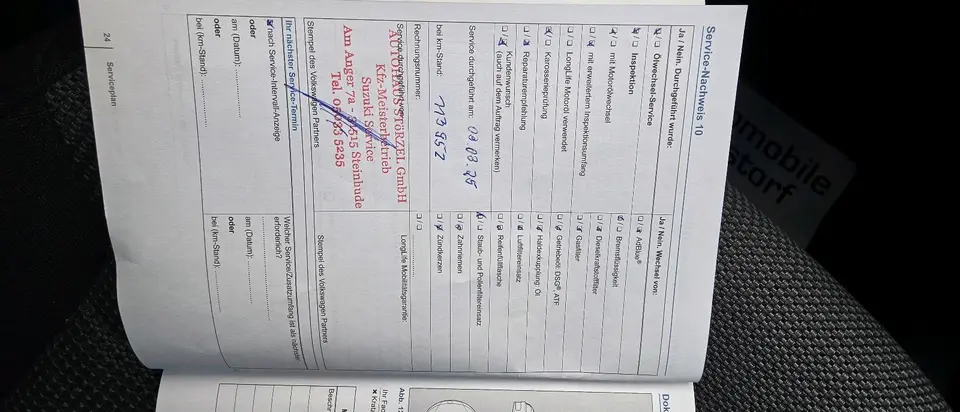 Service-Nachweis 10
Ja / Nein. Durchgeführt wurde:
Ölwechsel-Service
Inspektion
mit Motorölwechsel
mit erweitertem Inspektionsumfang
LongLife Motoröl verwendet
Karosserieprüfung
Reparaturempfehlung
Kundenwunsch
(auch auf dem Auftrag vermerken)
Service durchgeführt am: 03.03.25
bei km-Stand: 113952
Rechnungsnummer:
Service durchgeführt
AUTOHAUS STÖRZEL GmbH
Kfz-Meisterbetrieb
Suzuki Service
Am Anger 7a - 31515 Steinhude
Tel. 05033 5235
Stempel des Volkswagen Partners
Ja / Nein. Wechsel von:
AdBlue®
Bremsflüssigkeit
Dieselkraftstofffilter
Gasfilter
Getriebeöl: DSG® ATF
Haldexkupplung: Öl
Luftfiltereinsatz
Reifenfüllflasche
Staub- und Pollenfiltereinsatz
Zahnriemen
Zündkerzen
LongLife Mobilitätsgarantie:
Stempel des Volkswagen Partners
Ihr nächster Service-Termin
nach Service-Intervall-Anzeige
oder
am (Datum):
oder
bei (km-Stand):
Welcher Service/Zusatzumfang ist als nächster
erforderlich?
oder
am (Datum):
bei (km-Stand):
24
Serviceplan
Dok
Abb. 12
Ihr Fac
Kratz
Besch
mobile
storf